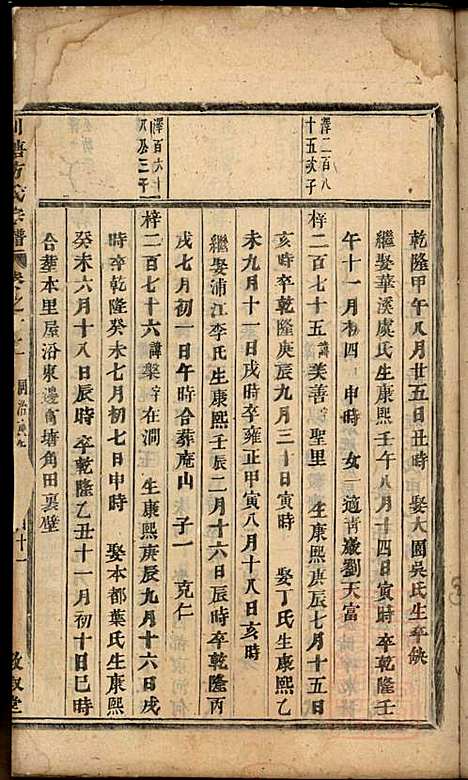 乾隆甲午八月廿五日丑時 娶大園吳氏生卒缺
繼娶華溪虞氏生康熙壬午八月十四日寅時卒乾隆壬
午十一月初四 申時 女一適靑巖劉天富
澤二百八
十五次子
梓二百七十五諱美善字聖里 生康熙庚辰七月十五日
亥時卒乾隆庚辰九月三十日寅時 娶丁氏生康熙乙
未九月十一日戌時卒雍正甲寅八月十八日亥時
繼娶浦江李氏生康熙壬辰二月十六日辰時卒乾隆丙
戌七月初一日午時合葬庵山 子一 克仁
澤百六十
八公三子
梓二百七十六諱槃字在澗 生康熙庚辰九月十六日戌
時卒乾隆癸未七月初七日申時 娶本都葉氏生康熙
癸未六月十八日辰時卒乾隆乙丑十一月初十日巳時
合塟本里屋沿東邊脅墻角田裏壁
方氏宗譜 卷之